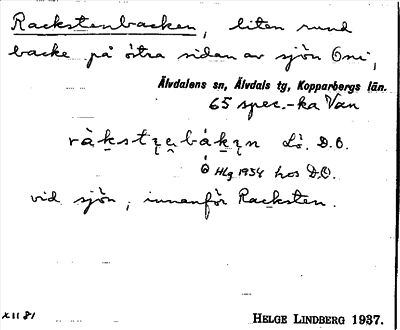 Rackstenbacken, liten rund
backe på östra sidan av sjön Omi,
Älvdalens sn, Älvdals tg, Kopparbergs län.
65 spec.-ka Van
Lò. D.O.
Hlg 1934 hos D.O.
vid sjön, innanför Racksten.
XII 81
HELGE LINDBERG 1937.